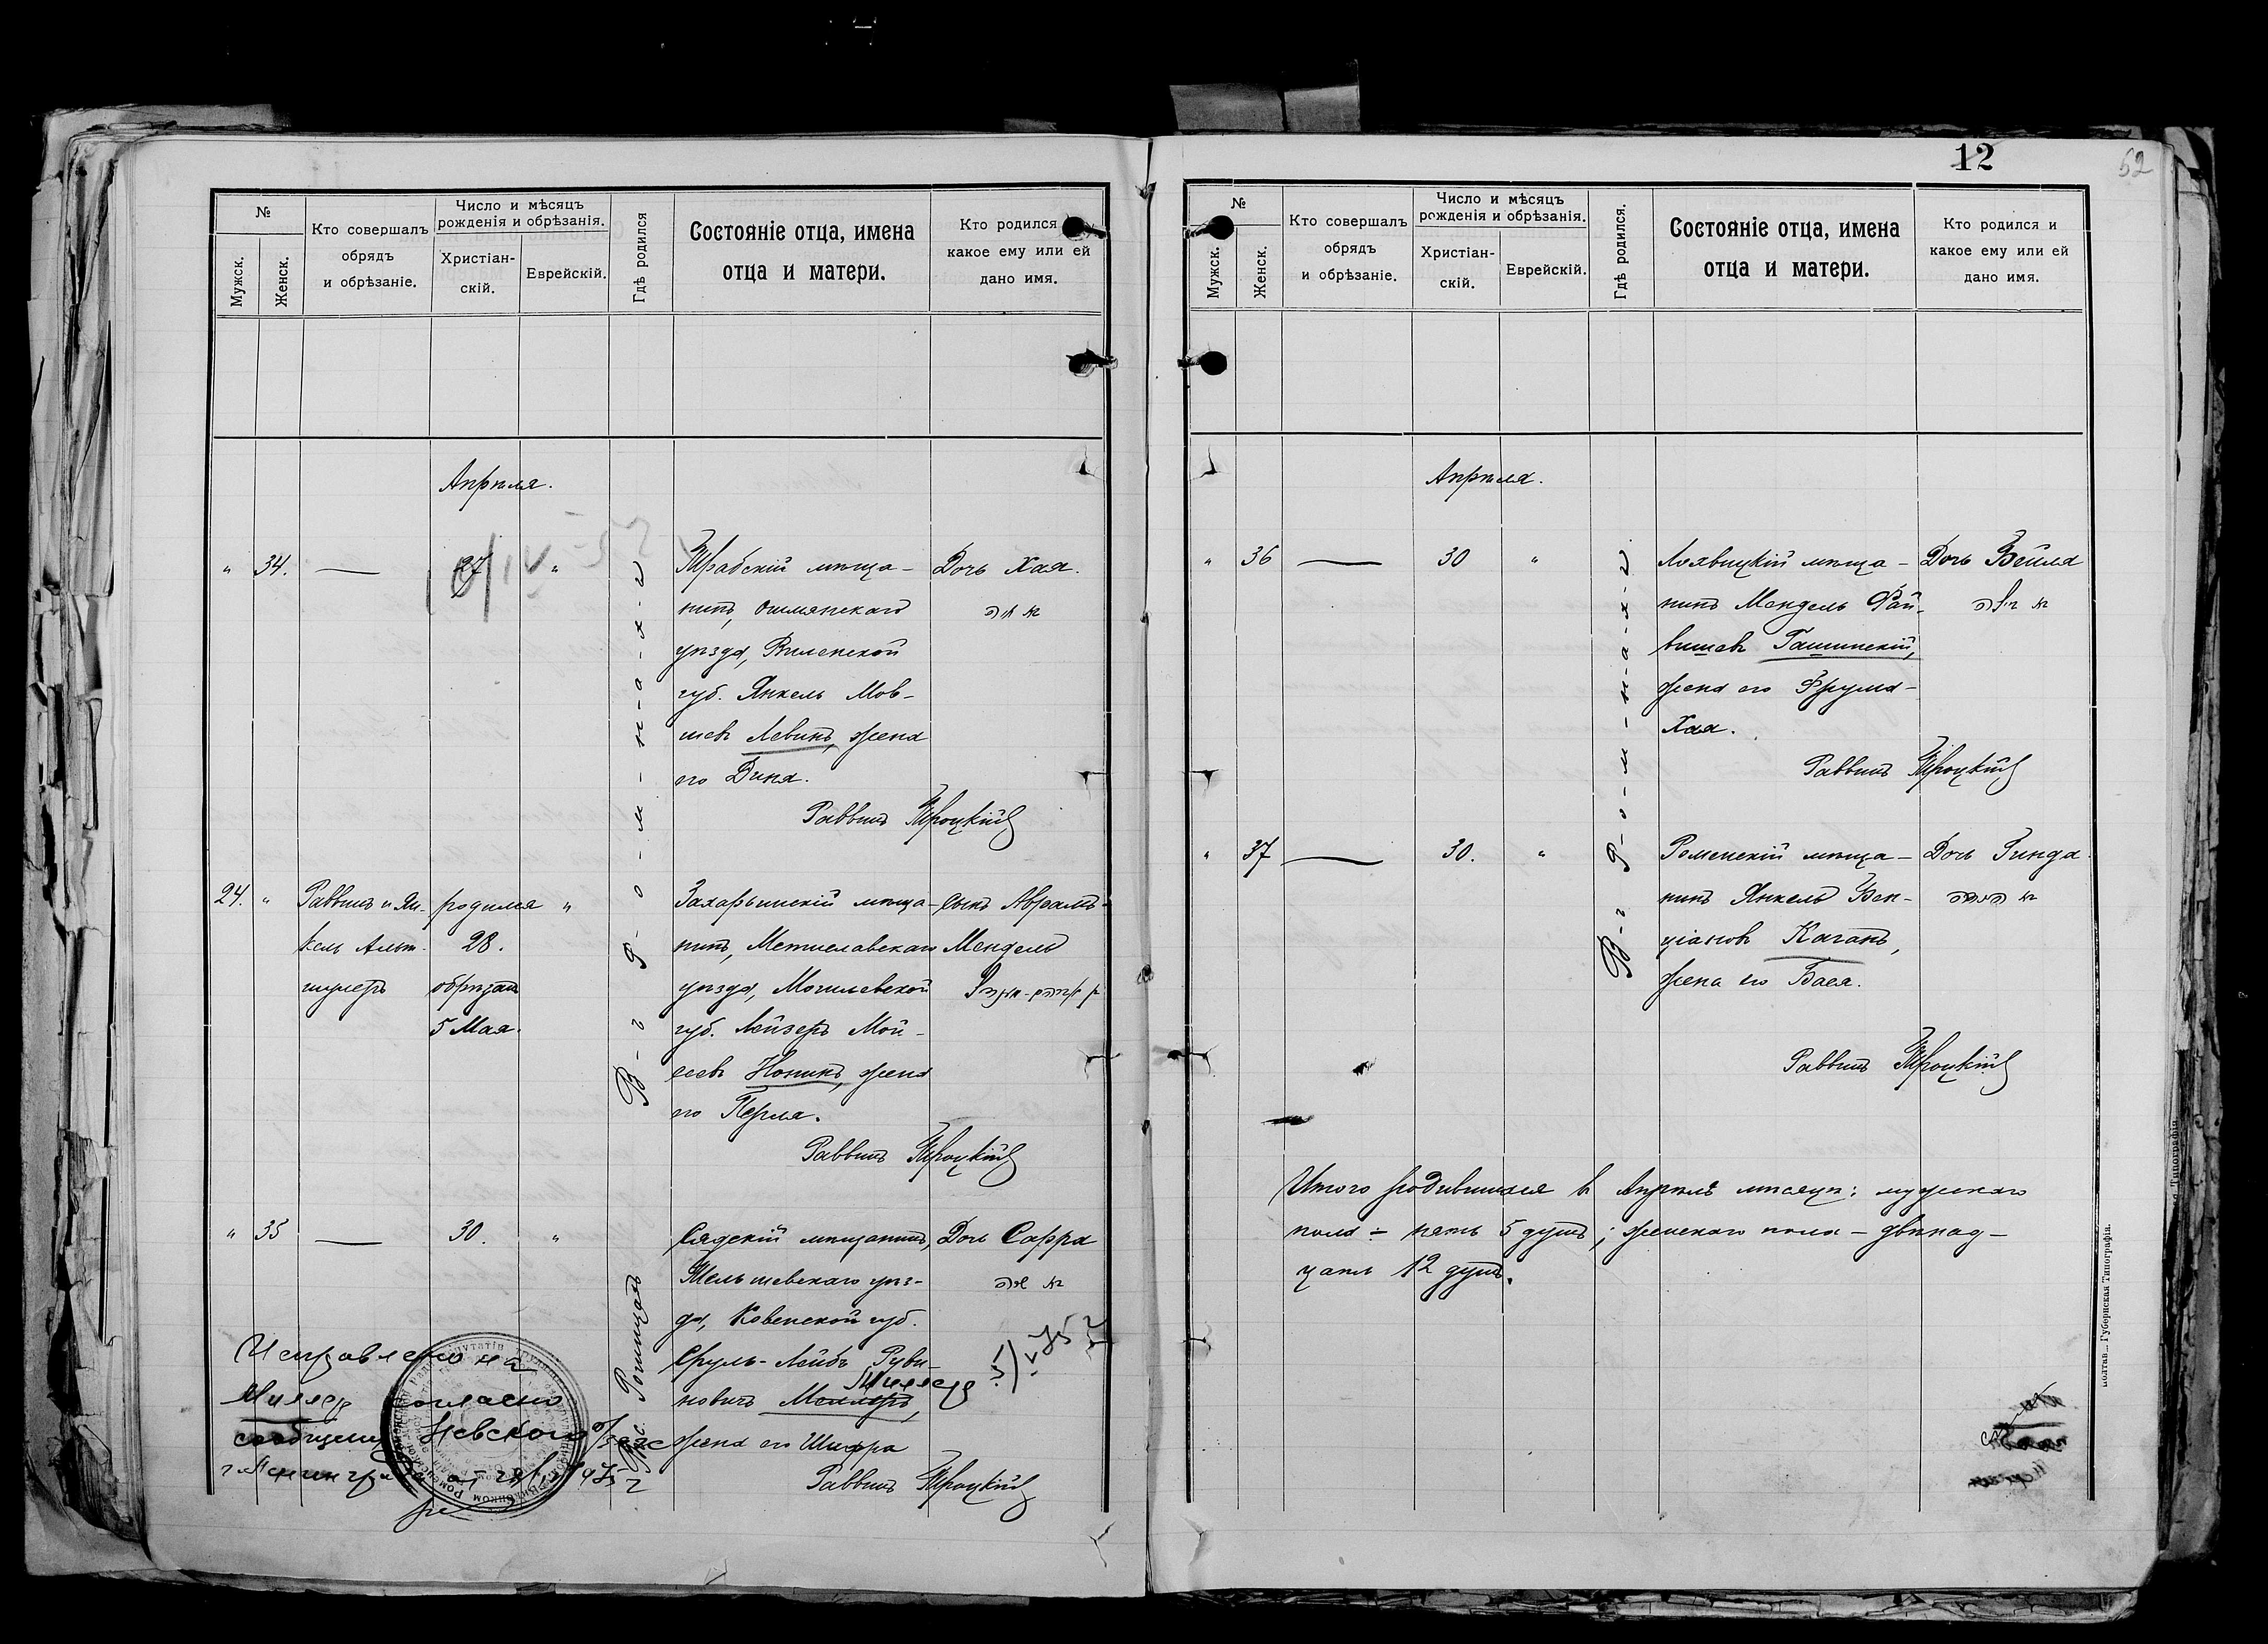 №
Мужск.
Женск.
Кто совершалъ
обрядъ
и обрѣзаніе.
Число и мѣсяцъ
рожденія и обрѣзанія.
Христіан-
скій.
Еврейскій.
Гдѣ родился
Состояніе отца, имена
отца и матери.
Кто родился
какое ему или ей
дано имя.
Апрѣля.
" 34. — 27 "
Трабскій мѣща-
нинъ, Ошмянскаго
уѣзда, Виленской
губ. Янкель Мов-
шевъ Левинъ, жена
его Дина.
Дочь Хая.
Раввинъ Троцкій
В-г Р-о-м-н-а-х-ъ
24. "
Раввинъ и Ян-
кель Альт-
шулеръ
родился "
28.
обрѣзанъ
5 Мая.
Захарьинскій мѣща-
нинъ, Мстиславскаго
уѣзда, Могилевской
губ. Лейзеръ Мой-
сеевъ Нопинъ, жена
его Перля.
Сынъ Абрамъ-
Мендель
Раввинъ Троцкій
" 35 — 30. "
Сядскій мѣщанинъ,
Тельшевскаго уѣз-
да, Ковенской губ.
Сруль-Лейбъ Руви-
новичъ Меллеръ,
Миллер
жена его Шифра
Дочь Сарра
Раввинъ Троцкій
Исправлено на
Миллер согласно
сообщения Невского
г. Ленинграда
12
52
№
Мужск.
Женск.
Кто совершалъ
обрядъ
и обрѣзаніе.
Число и мѣсяцъ
рожденія и обрѣзанія.
Христіан-
скій.
Еврейскій.
Гдѣ родился.
Состояніе отца, имена
отца и матери.
Кто родился и
какое ему или ей
дано имя.
Апрѣля.
" 36 — 30 "
В-г Р-о-м-н-а-х-ъ
Ляявицкій мѣща-
нинъ Мендель Фай-
вишевъ Гашинскій,
жена его Фрума-
Хая.
Дочь Бейля
Раввинъ Троцкій
" 37 — 30. "
Роменскій мѣща-
нинъ Янкель Бен-
ціановъ Каганъ,
жена его Бася.
Дочь Гинда
Раввинъ Троцкій
Итого родившихся въ Апрѣлѣ мѣсяцѣ: мужского
пола — пять 5 душъ; женскаго пола — двѣнад-
цать 12 душъ.
Губернская Типографія.